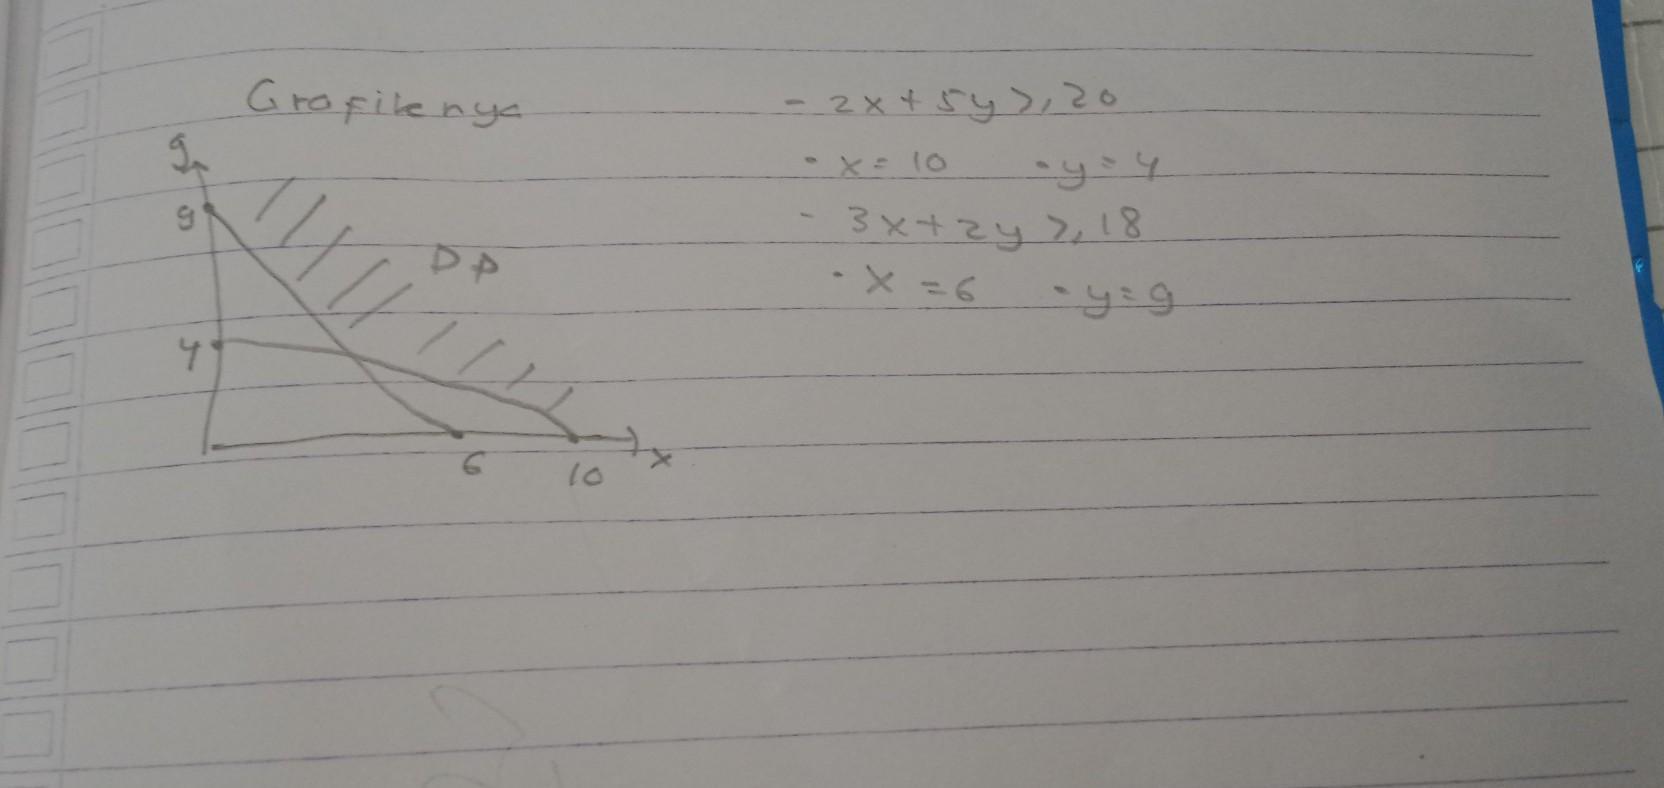 Grafiknya
y
9
DP
4
6
10
x
- 2x + 5y ≥ 20
• x = 10 • y = 4
- 3x + 2y ≥ 18
• x = 6 • y = 9